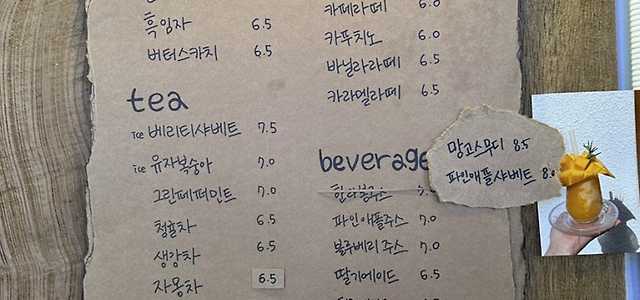 흑임자 6.5
버터스카치 6.5
tea
ice 베리티샤베트 7.5
ice 유자복숭아 7.0
그린페퍼민트 7.0
청귤차 6.5
생강차 6.5
자몽차 6.5
카페라떼 6.0
카푸치노 6.0
바닐라라떼 6.0
카라멜라떼 6.0
beverage
한라봉주스
파인애플주스 7.0
블루베리 주스 7.0
딸기에이드 6.5
망고스무디 8.5
파인애플샤베트 8.0